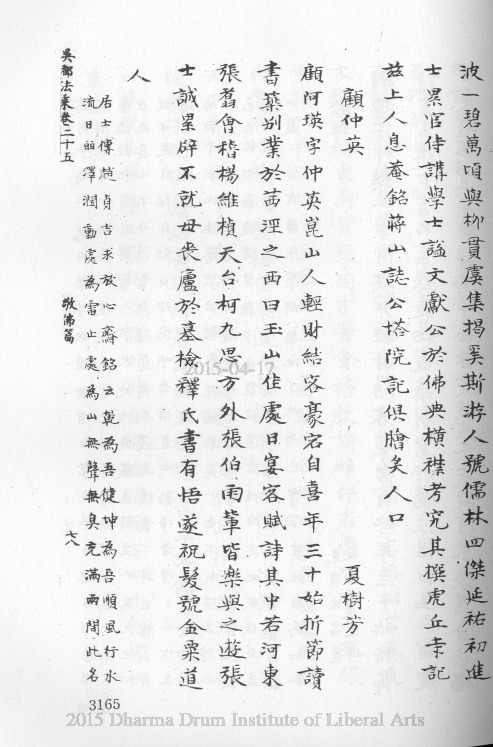 波一碧萬頃與柳貫虞集揭奚斯游人號儒林四傑延祐初進
士累官侍講學士謚文獻公於佛典橫襟考究其撰虎丘幸記
茲上人息菴銘蔣山誌公塔院記俱膾炙人口
顧仲英 夏樹芳
顧阿瑛字仲英崑山人輕財結客豪宕自喜年三十始折節讀
書築別業於茜涇之西曰玉山佳處日宴客賦詩其中若河東
張翥會稽楊維楨天台柯九思方外張伯雨輩皆樂與之遊張
士誠累辟不就母喪廬於墓檢釋氏書有悟遂祝髮號金粟道
人
居士傳趙貞吉求放心齋銘云乾為吾健坤為吾順風行水
流日麗澤潤動處為雷止處為山無聲無臭充滿兩間此名
吳都法乘卷二十五 敬佛篇 十八
3165
2015-04-17
2015 Dharma Drum Institute of Liberal Arts